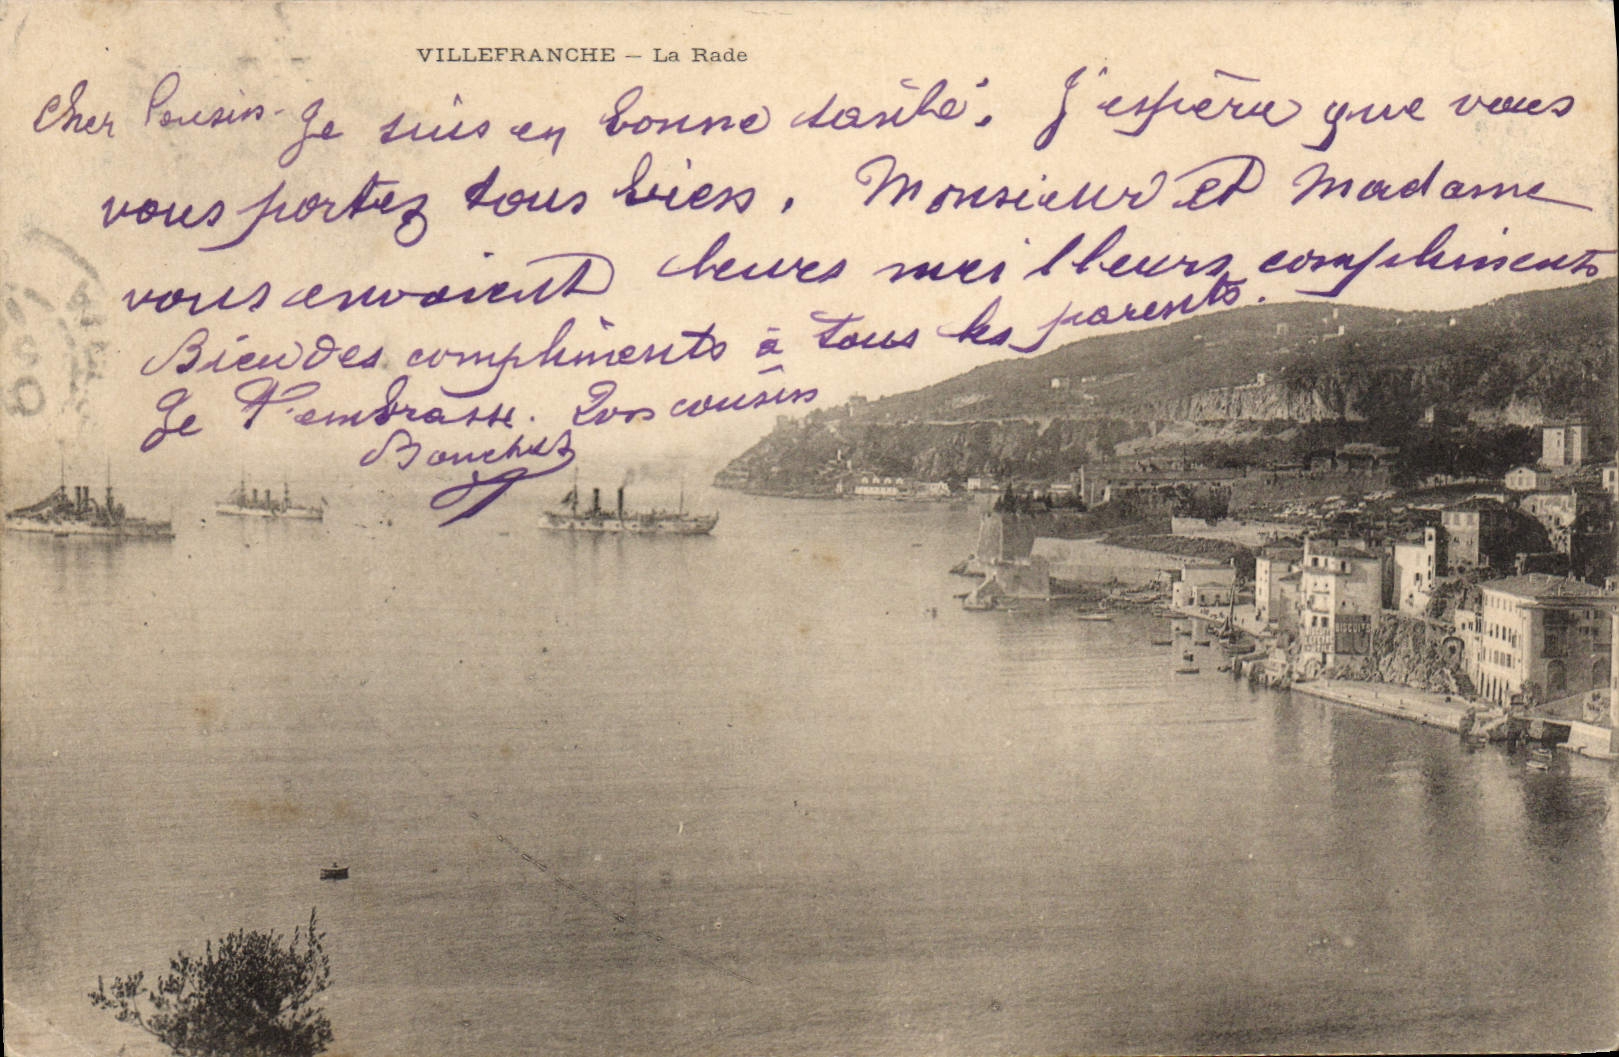 VILLEFRANCHE – La Rade
Cher Cousin. Je suis en bonne santé. J'espère que vous
vous portez tous bien. Monsieur et Madame
vous envoient leurs meilleurs compliments
Bien des compliments à tous les parents.
Je t'embrasse. cousin
Bouchet
BISCUITS